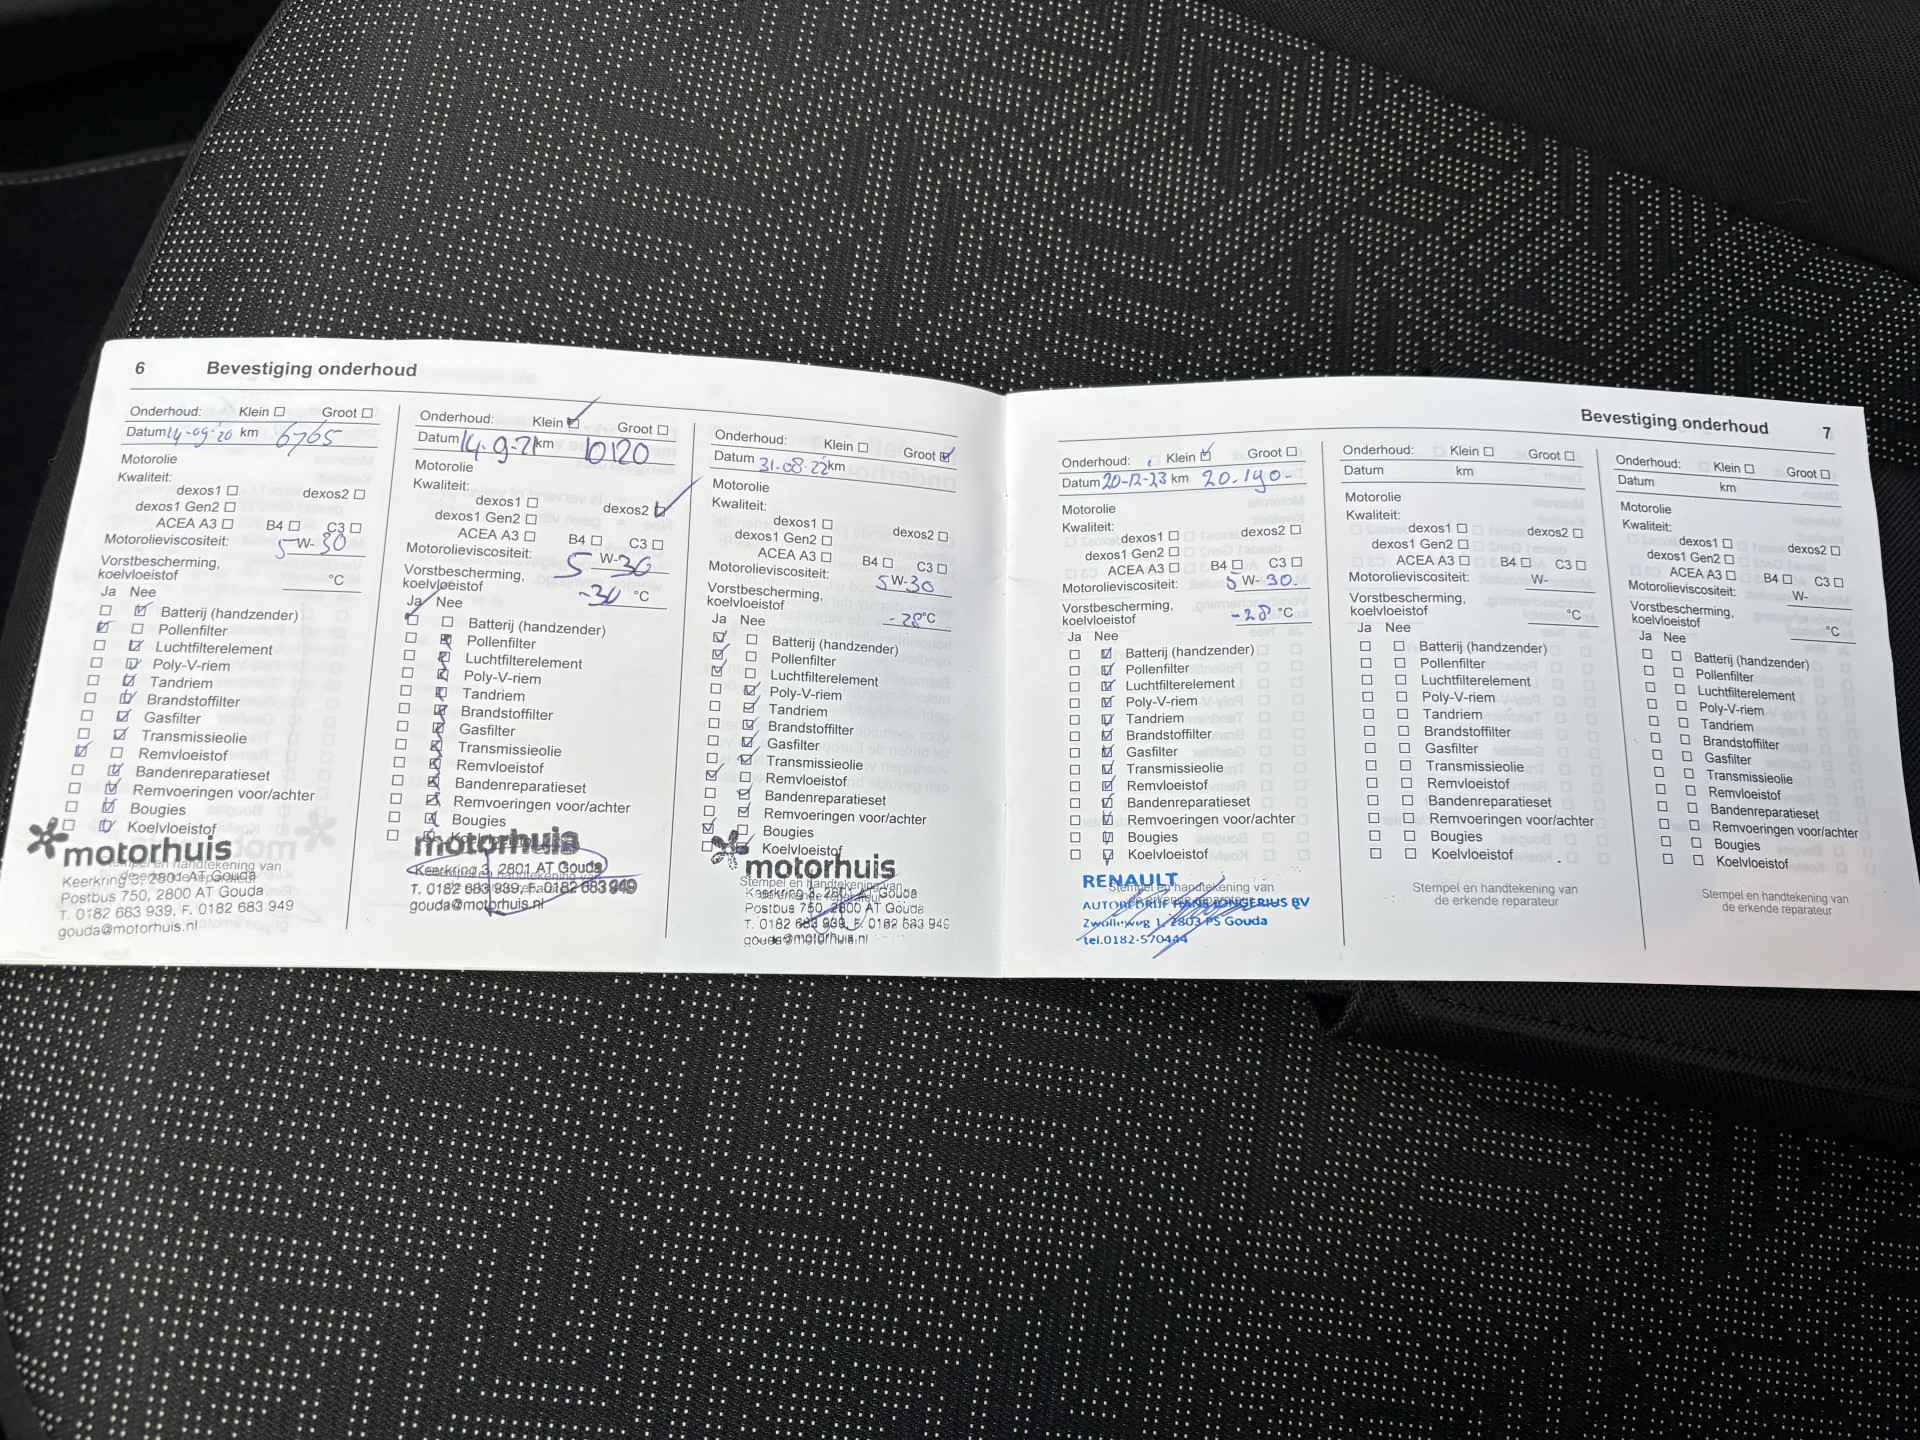 6 Bevestiging onderhoud
Onderhoud: Klein ☐ Groot ☐
Datum 14-09-'20 km 6765
Motorolie
Kwaliteit:
dexos1 ☐ dexos2 ☐
dexos1 Gen2 ☐
ACEA A3 ☐ B4 ☐ C3 ☐
Motorolieviscositeit: 5 W- 30
Vorstbescherming,
koelvloeistof °C
Ja Nee
☐ ☑ Batterij (handzender)
☑ ☐ Pollenfilter
☐ ☑ Luchtfilterelement
☐ ☑ Poly-V-riem
☐ ☑ Tandriem
☐ ☑ Brandstoffilter
☐ ☑ Gasfilter
☐ ☑ Transmissieolie
☑ ☐ Remvloeistof
☐ ☑ Bandenreparatieset
☐ ☑ Remvoeringen voor/achter
☐ ☑ Bougies
☐ ☑ Koelvloeistof
motorhuis
Keerkring 3, 2801 AT Gouda
Postbus 750, 2800 AT Gouda
T. 0182 683 949, F. 0182 683 949
gouda@motorhuis.nl
Onderhoud: Klein ☑ Groot ☐
Datum 14-9-21 km 10120
Motorolie
Kwaliteit:
dexos1 ☐ dexos2 ☑
dexos1 Gen2 ☐
ACEA A3 ☐ B4 ☐ C3 ☐
Motorolieviscositeit: 5 W-30
Vorstbescherming,
koelvloeistof -30 °C
Ja Nee
☑ ☐ Batterij (handzender)
☐ ☑ Pollenfilter
☐ ☑ Luchtfilterelement
☐ ☑ Poly-V-riem
☐ ☑ Tandriem
☐ ☑ Brandstoffilter
☐ ☑ Gasfilter
☐ ☑ Transmissieolie
☐ ☑ Remvloeistof
☐ ☑ Bandenreparatieset
☐ ☑ Remvoeringen voor/achter
☐ ☑ Bougies
☐ ☑ Koelvloeistof
motorhuis
Keerkring 3, 2801 AT Gouda
T. 0182 683 939, F. 0182 683 949
gouda@motorhuis.nl
Onderhoud: Klein ☐ Groot ☑
Datum 31-08-22 km
Motorolie
Kwaliteit:
dexos1 ☐ dexos2 ☐
dexos1 Gen2 ☐
ACEA A3 ☐ B4 ☐ C3 ☐
Motorolieviscositeit: 5 W-30
Vorstbescherming,
koelvloeistof -28 °C
Ja Nee
☑ ☐ Batterij (handzender)
☑ ☐ Pollenfilter
☑ ☐ Luchtfilterelement
☐ ☑ Poly-V-riem
☐ ☑ Tandriem
☐ ☑ Brandstoffilter
☐ ☑ Gasfilter
☐ ☑ Transmissieolie
☑ ☐ Remvloeistof
☐ ☑ Bandenreparatieset
☐ ☑ Remvoeringen voor/achter
☑ ☐ Bougies
☐ ☑ Koelvloeistof
motorhuis
Stempel en handtekening van
Keerkring 3, 2801 AT Gouda
Postbus 750, 2800 AT Gouda
T. 0182 683 939, F. 0182 683 949
gouda@motorhuis.nl
Bevestiging onderhoud 7
Onderhoud: Klein ☑ Groot ☐
Datum 20-12-23 km 20.190-
Motorolie
Kwaliteit:
dexos1 ☐ dexos2 ☐
dexos1 Gen2 ☐
ACEA A3 ☐ B4 ☐ C3 ☐
Motorolieviscositeit: 5 W- 30.
Vorstbescherming,
koelvloeistof -28 °C
Ja Nee
☐ ☑ Batterij (handzender)
☐ ☑ Pollenfilter
☐ ☑ Luchtfilterelement
☐ ☑ Poly-V-riem
☐ ☑ Tandriem
☐ ☑ Brandstoffilter
☐ ☑ Gasfilter
☐ ☑ Transmissieolie
☐ ☑ Remvloeistof
☐ ☑ Bandenreparatieset
☐ ☑ Remvoeringen voor/achter
☐ ☑ Bougies
☐ ☑ Koelvloeistof
RENAULT
Stempel en handtekening van
AUTOBEDRIJF HANS JONGERIUS BV
Zwolleweg 1, 2803 PS Gouda
tel.0182-570444
Onderhoud: Klein ☐ Groot ☐
Datum km
Motorolie
Kwaliteit:
dexos1 ☐ dexos2 ☐
dexos1 Gen2 ☐
ACEA A3 ☐ B4 ☐ C3 ☐
Motorolieviscositeit: W-
Vorstbescherming,
koelvloeistof °C
Ja Nee
☐ ☐ Batterij (handzender)
☐ ☐ Pollenfilter
☐ ☐ Luchtfilterelement
☐ ☐ Poly-V-riem
☐ ☐ Tandriem
☐ ☐ Brandstoffilter
☐ ☐ Gasfilter
☐ ☐ Transmissieolie
☐ ☐ Remvloeistof
☐ ☐ Bandenreparatieset
☐ ☐ Remvoeringen voor/achter
☐ ☐ Bougies
☐ ☐ Koelvloeistof
Stempel en handtekening van
de erkende reparateur
Onderhoud: Klein ☐ Groot ☐
Datum km
Motorolie
Kwaliteit:
dexos1 ☐ dexos2 ☐
dexos1 Gen2 ☐
ACEA A3 ☐ B4 ☐ C3 ☐
Motorolieviscositeit: W-
Vorstbescherming,
koelvloeistof °C
Ja Nee
☐ ☐ Batterij (handzender)
☐ ☐ Pollenfilter
☐ ☐ Luchtfilterelement
☐ ☐ Poly-V-riem
☐ ☐ Tandriem
☐ ☐ Brandstoffilter
☐ ☐ Gasfilter
☐ ☐ Transmissieolie
☐ ☐ Remvloeistof
☐ ☐ Bandenreparatieset
☐ ☐ Remvoeringen voor/achter
☐ ☐ Bougies
☐ ☐ Koelvloeistof
Stempel en handtekening van
de erkende reparateur